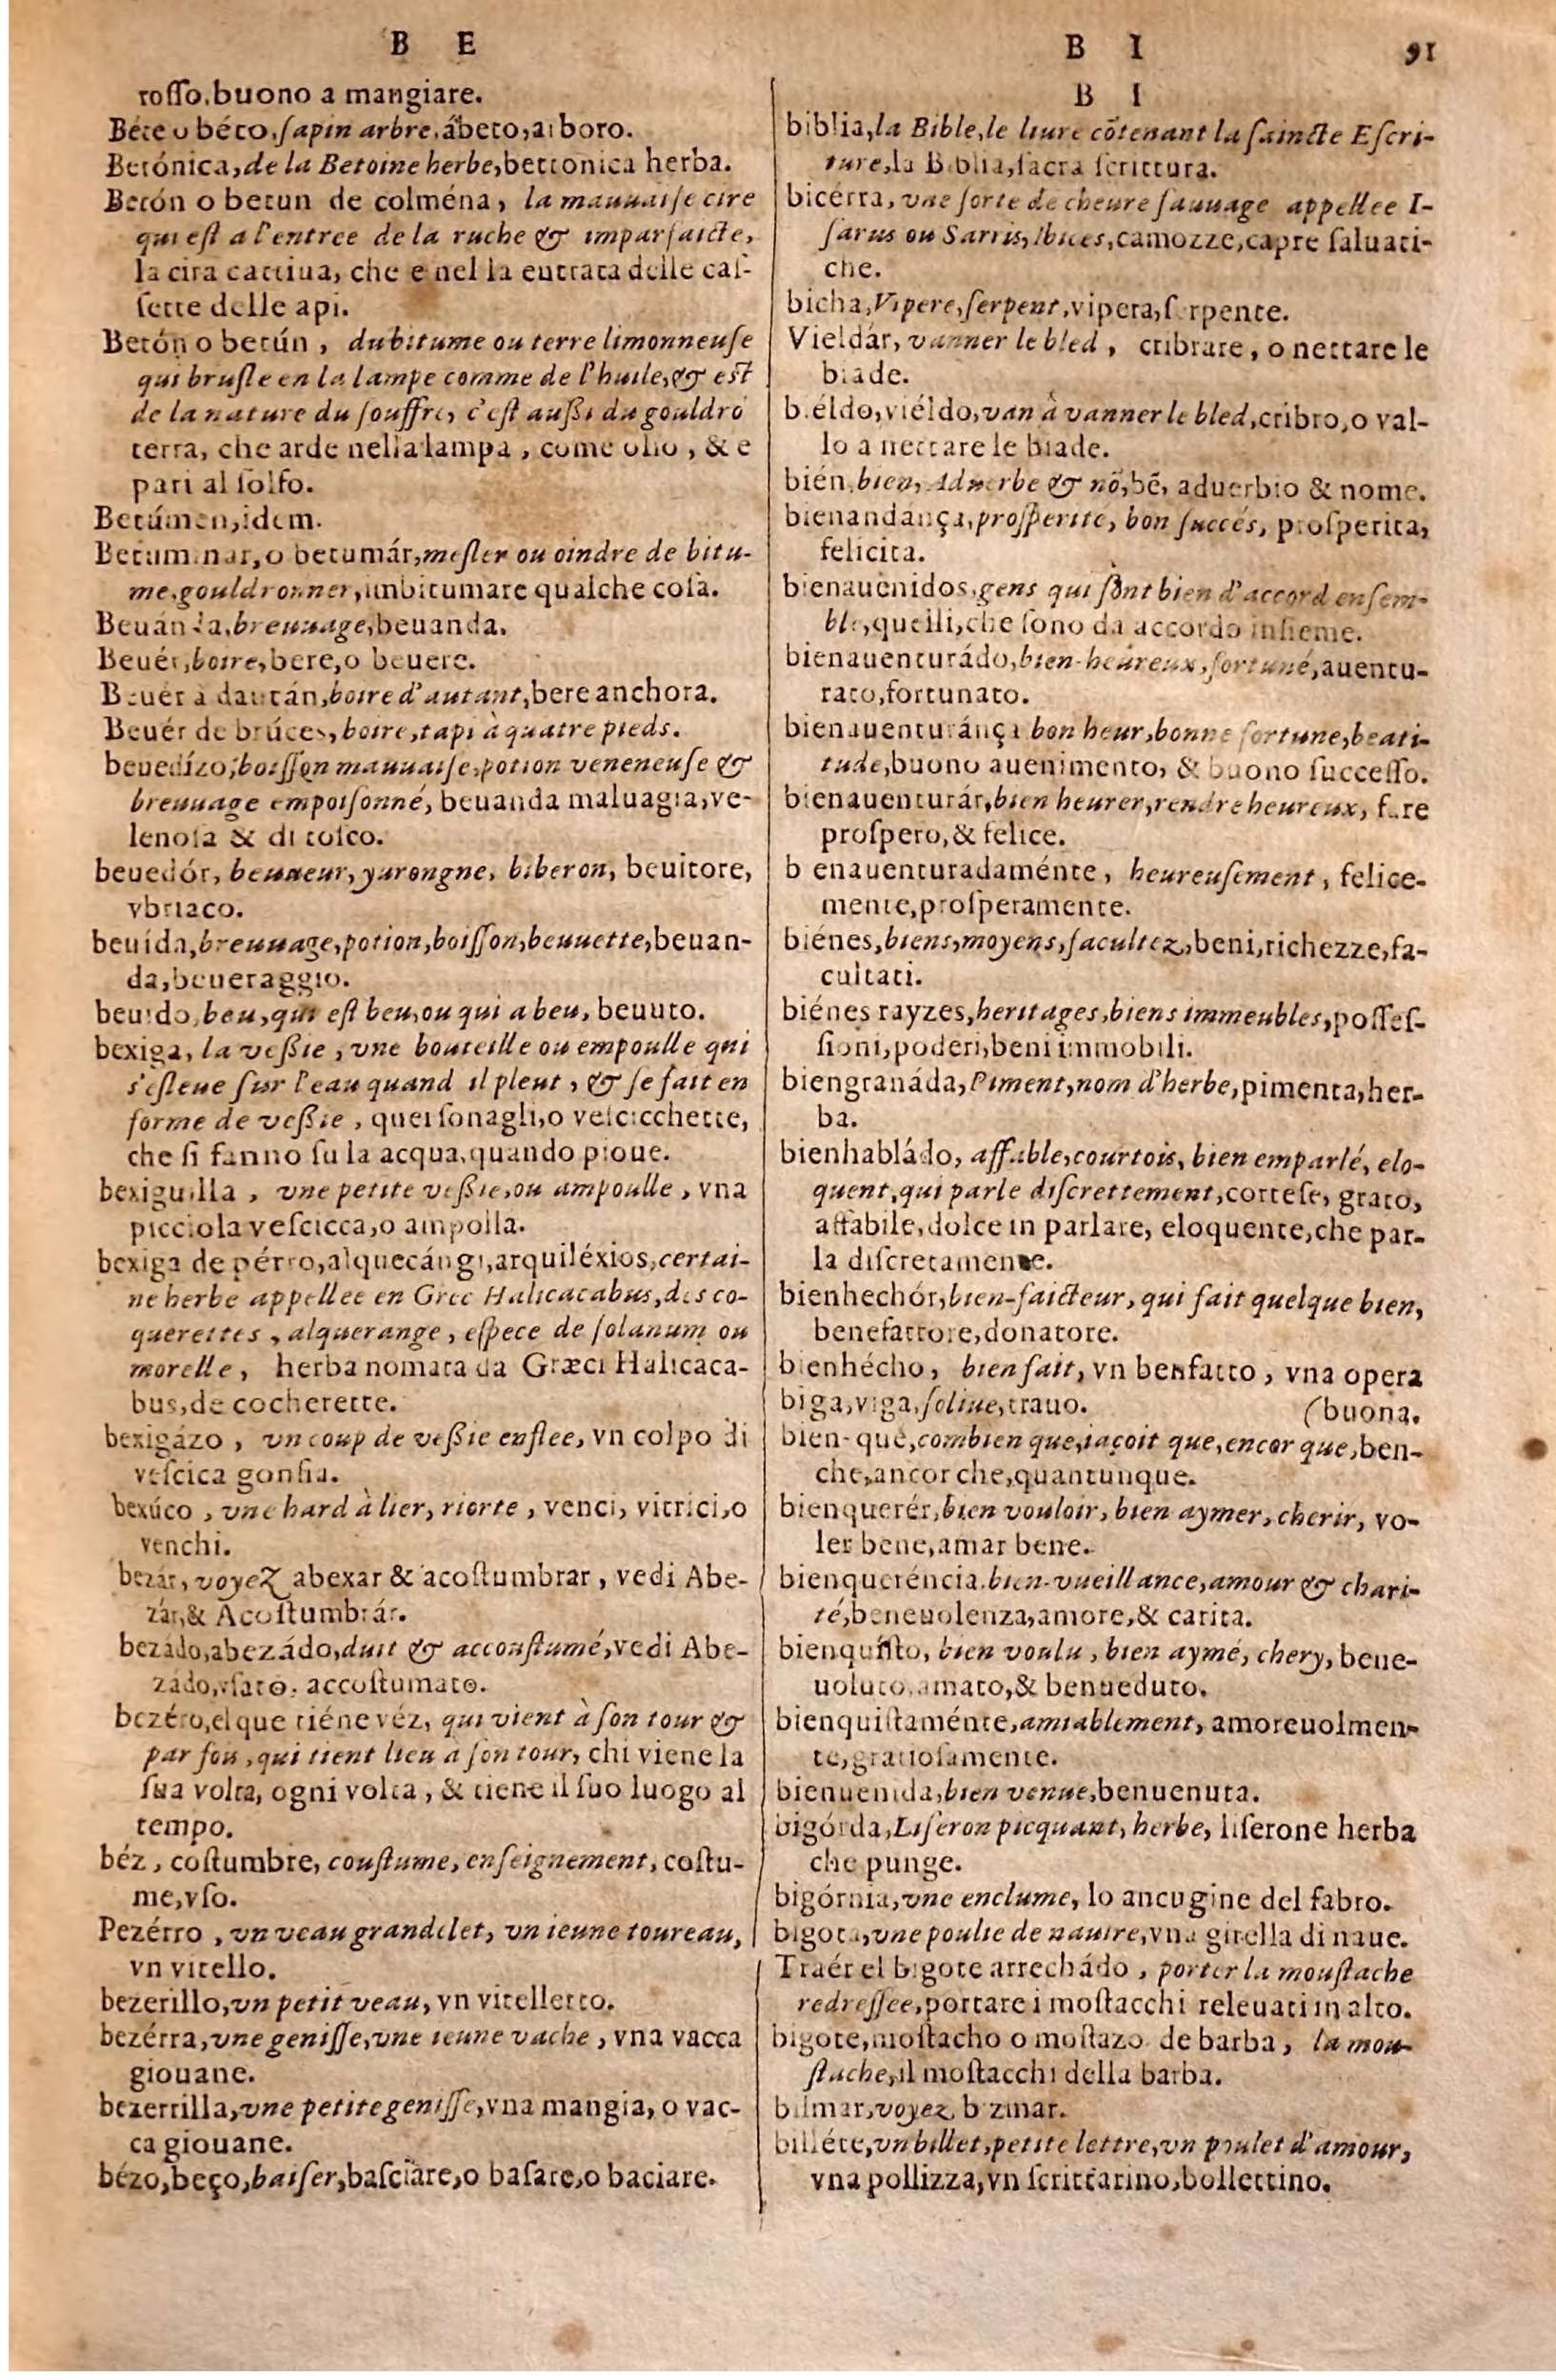 B E
roſſo,buono a mangiare.
Béte o béto,ſapin arbre,abeto,arboro.
Betónica,de la Betoine herbe,bettonica herba.
Betón o betun de colména, la mauuaiſe cire
qui eſt a l'entree de la ruche & imparfaicte,
la cira cattiua, che e nel la eutrata delle caſ-
ſette delle api.
Betón o betún, du bitume ou terre limonneuſe
qui bruſle en la lampe comme de l'huile,& est
de la nature du ſouffre, c'eſt außi du gouldrō
terra, che arde nella lampa, come olio, & e
pari al ſolfo.
Betúmen,idem.
Betuminar,o betumár,meſler ou oindre de bitu-
me,gouldronner,imbitumare qualche coſa.
Beuánda,breuuage,beuanda.
Beuér,boire,bere,o beuere.
Beuér a daután,boire d'autant,bere anchora.
Beuér de brúces,boire,tapi à quatre pieds.
beuedízo,boiſſon mauuaiſe,potion veneneuſe &
breuuage empoiſonné, beuanda maluagia,ve-
lenoſa & di toſco.
beuedór, beuueur, yurongne, biberon, beuitore,
vbriaco.
beuída,breuuage,potion,boiſſon,beuuette,beuan-
da,beueraggio.
beuido,beu,qui eſt beu,ou qui a beu, beuuto.
bexiga, la veßie, vne bouteille ou empoulle qui
s'eſleue ſur l'eau quand il pleut, & ſe fait en
forme de veßie, quei ſonagli,o veſcicchette,
che ſi fanno ſu la acqua,quando pioue.
bexiguilla, vne petite veßie,ou ampoulle, vna
picciola veſcicca,o ampolla.
bexiga de pérro,alquecángi,arquiléxios,certai-
ne herbe appellee en Grec Halicacabus,des co-
querettes, alquerange, eſpece de ſolanum ou
morelle, herba nomata da Græci Halicaca-
bus,de cocherette.
bexigázo, vn coup de veßie enflee, vn colpo di
veſcica gonfia.
bexúco, vne hard à lier, riorte, venci, vitrici,o
venchi.
bezár, voyez abexar & acoſtumbrar, vedi Abe-
zár,& Acoſtumbrár.
bezádo,abezádo,duit & accouſtumé,vedi Abe-
zádo,vſato, accoſtumato.
bezéro,el que tiéne véz, qui vient à ſon tour &
par ſou, qui tient lieu à ſon tour, chi viene la
ſua volta, ogni volta, & tiene il ſuo luogo al
tempo.
béz, coſtumbre, couſtume, enſeignement, coſtu-
me,vſo.
Pezérro, vn veau grandelet, vn ieune toureau,
vn vitello.
bezerillo,vn petit veau, vn vitelletto.
bezérra,vne geniſſe,vne ieune vache, vna vacca
giouane.
bezerrilla,vne petite geniſſe,vna mangia, o vac-
ca giouane.
bézo,beço,baiſer,baſciare,o baſare,o baciare.
B I
91
B I
biblia,la Bible,le liure cōtenant la ſaincte Eſcri-
ture,la Biblia,ſacra ſcrittura.
bicérra, vne ſorte de cheure ſauuage appellee I-
ſarus ou Sarris, Ibices,camozze,capre ſaluati-
che.
bicha,Vipere,ſerpent,vipera,ſerpente.
Vieldár, vanner le bled, cribrare, o nettare le
biade.
biéldo,viéldo,van à vanner le bled,cribro,o val-
lo a nettare le biade.
bién,bien, Aduerbe & nō,bē, aduerbio & nome.
bienandança,proſperité, bon ſuccés, proſperita,
felicita.
bienauenidos,gens qui ſont bien d'accord enſem-
ble,quelli,che ſono da accordo inſieme.
bienauenturádo,bien-heureux,fortuné,auentu-
rato,fortunato.
bienauenturánça bon heur,bonne fortune,beati-
tude,buono auenimento, & buono ſucceſſo.
bienauenturár,bien heurer,rendre heureux, fare
proſpero,& felice.
b enauenturadaménte, heureuſement, felice-
mente,proſperamente.
biénes,biens,moyens,facultez,beni,richezze,fa-
cultati.
biénes rayzes,heritages,biens immeubles,poſſeſ-
ſioni,poderi,beni immobili.
biengranáda,Piment,nom d'herbe,pimenta,her-
ba.
bienhabládo, affable,courtois, bien emparlé, elo-
quent,qui parle diſcrettement,corteſe, grato,
affabile,dolce in parlare, eloquente,che par-
la diſcretamente.
bienhechór,bien-faicteur, qui fait quelque bien,
benefattore,donatore.
bienhécho, bien fait, vn benfatto, vna opera
biga,viga,ſoliue,trauo. (buona.
bien-que,combien que,iaçoit que,encor que,ben-
che,ancor che,quantunque.
bienquerér,bien vouloir, bien aymer, cherir, vo-
ler bene,amar bene.
bienqueréncia,bien-vueillance,amour & chari-
té,beneuolenza,amore,& carita.
bienquiſto, bien voulu, bien aymé, chery, bene-
uoluto,amato,& benueduto.
bienquiſtaménte,amiablement, amoreuolmen-
te,gratioſamente.
bienuenida,bien venue,benuenuta.
bigórda,Liſeron picquant, herbe, liſerone herba
che punge.
bigórnia,vne enclume, lo ancugine del fabro.
bigota,vne poulie de nauire,vna girella di naue.
Traér el bigote arrechádo, porter la mouſtache
redreſſee,portare i moſtacchi releuati in alto.
bigote,moſtacho o moſtazo de barba, la mou-
ſtache,il moſtacchi della barba.
bilmar,voyez b zmar.
billéte,vn billet,petite lettre,vn poulet d'amour,
vna pollizza,vn ſcrittarino,bollettino.